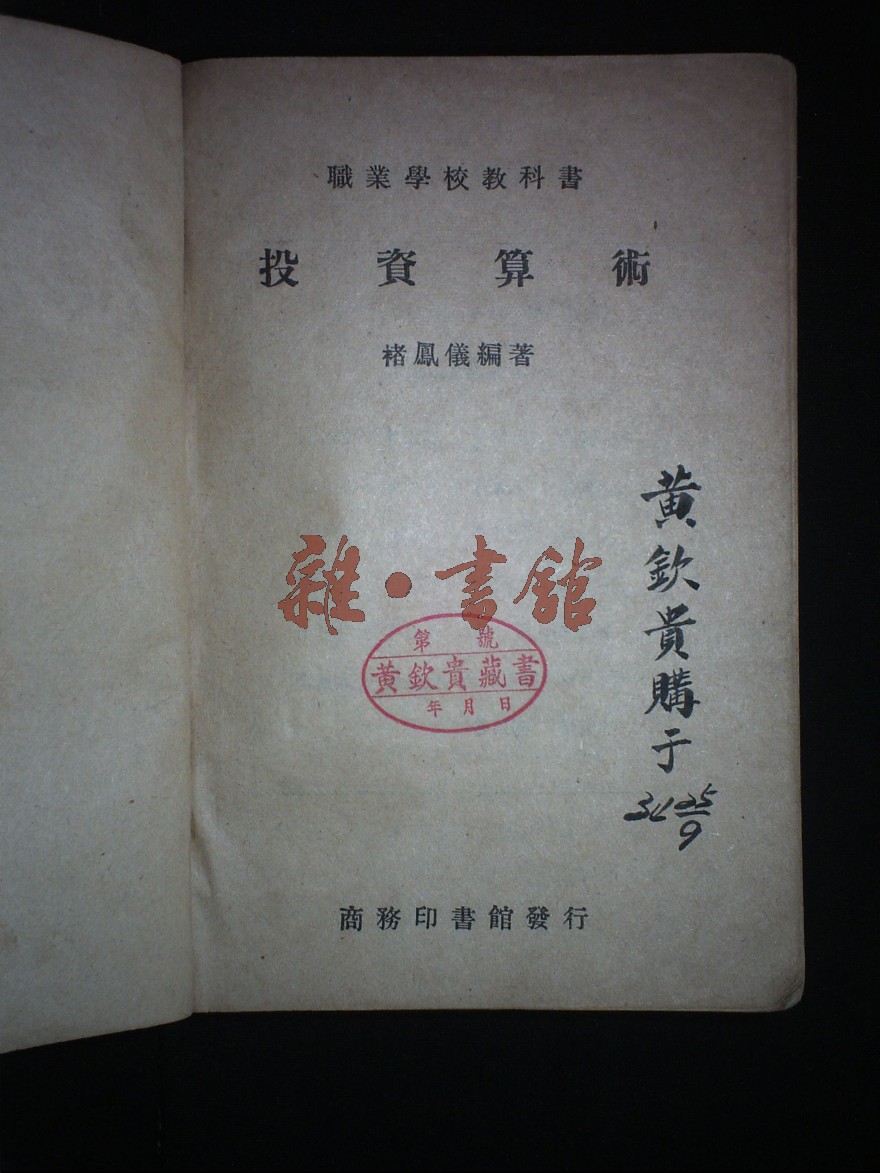 職業學校教科書
投資算術
褚鳳儀編著
黃欽貴購于
34 25/9
雜·書館
第 號
黃欽貴藏書
年月日
商務印書館發行